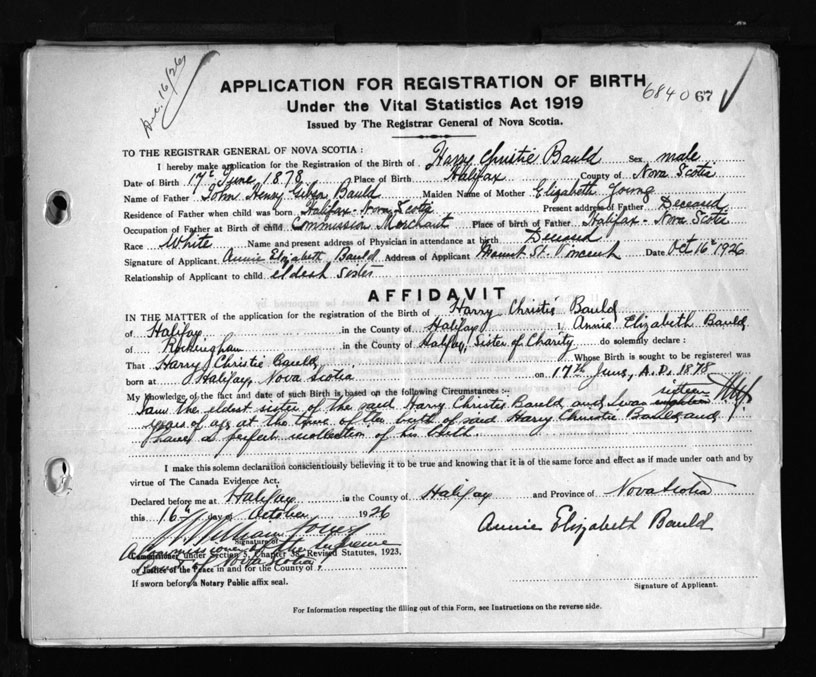 Dec. 16/26
APPLICATION FOR REGISTRATION OF BIRTH
6840 67
Under the Vital Statistics Act 1919
Issued by The Registrar General of Nova Scotia.
TO THE REGISTRAR GENERAL OF NOVA SCOTIA :
I hereby make application for the Registration of the Birth of Harry Christie Bauld Sex male
Date of Birth 17th June, 1878 Place of Birth Halifax County of Nova Scotia
Name of Father John Henry Gibson Bauld Maiden Name of Mother Elizabeth Young
Residence of Father when child was born Halifax - Nova Scotia Present address of Father Deceased
Occupation of Father at Birth of child Commission Merchant Place of birth of Father Halifax - Nova Scotia
Race White Name and present address of Physician in attendance at birth Deceased
Signature of Applicant Annie Elizabeth Bauld Address of Applicant Mount St. Vincent Date Oct 16th 1926
Relationship of Applicant to child eldest sister
AFFIDAVIT
IN THE MATTER of the application for the registration of the Birth of Harry Christie Bauld
of Halifax in the County of Halifax I, Annie Elizabeth Bauld
of Rockingham in the County of Halifax, Sister of Charity do solemnly declare :
That Harry Christie Bauld Whose Birth is sought to be registered was
born at Halifax, Nova Scotia on 17th June, A.D. 1878
My knowledge of the fact and date of such Birth is based on the following Circumstances :-
I am the eldest sister of the said Harry Christie Bauld and I was sixteen
years of age at the time of the birth of said Harry Christie Bauld and
I have a perfect recollection of his birth.
I make this solemn declaration conscientiously believing it to be true and knowing that it is of the same force and effect as if made under oath and by
virtue of The Canada Evidence Act.
Declared before me at Halifax in the County of Halifax and Province of Nova Scotia
this 16th day of October 1926
Annie Elizabeth Bauld
Signature of
A Commissioner of the Supreme
Commissioner under Section 3, Chapter 38, Revised Statutes, 1923.
Court of Nova Scotia
or Justice of the Peace in and for the County of
If sworn before a Notary Public affix seal.
Signature of Applicant.
For Information respecting the filling out of this Form, see Instructions on the reverse side.